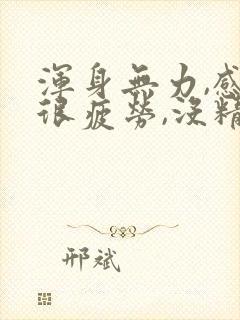 渾身無力,感
很疲勞,沒精
邢斌